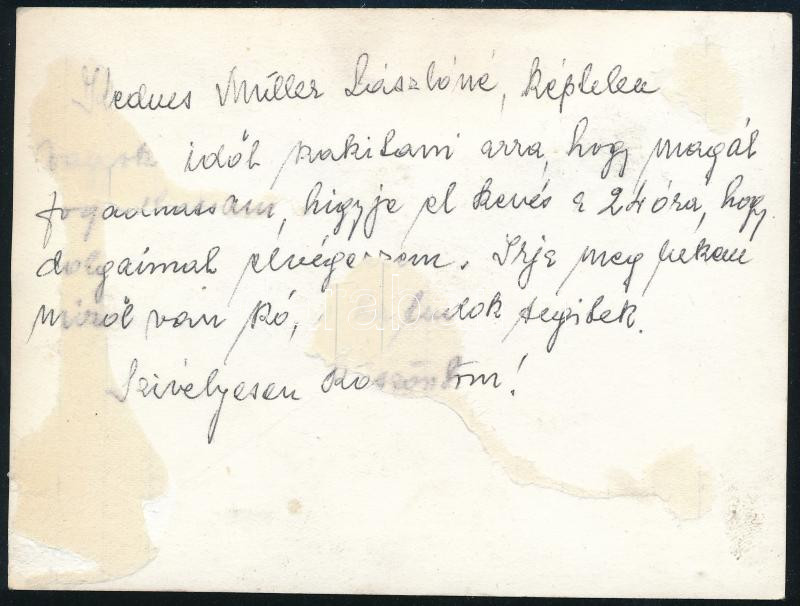 Kedves Müller Lászlóné, képtelen
vagyok időt szakítani arra, hogy magát
fogadhassam, higyje el kevés a 24 óra, hogy
dolgaimat elvégezzem. Irja meg nekem
miről van szó, ha tudok segitek.
Szivélyesen köszöntöm!